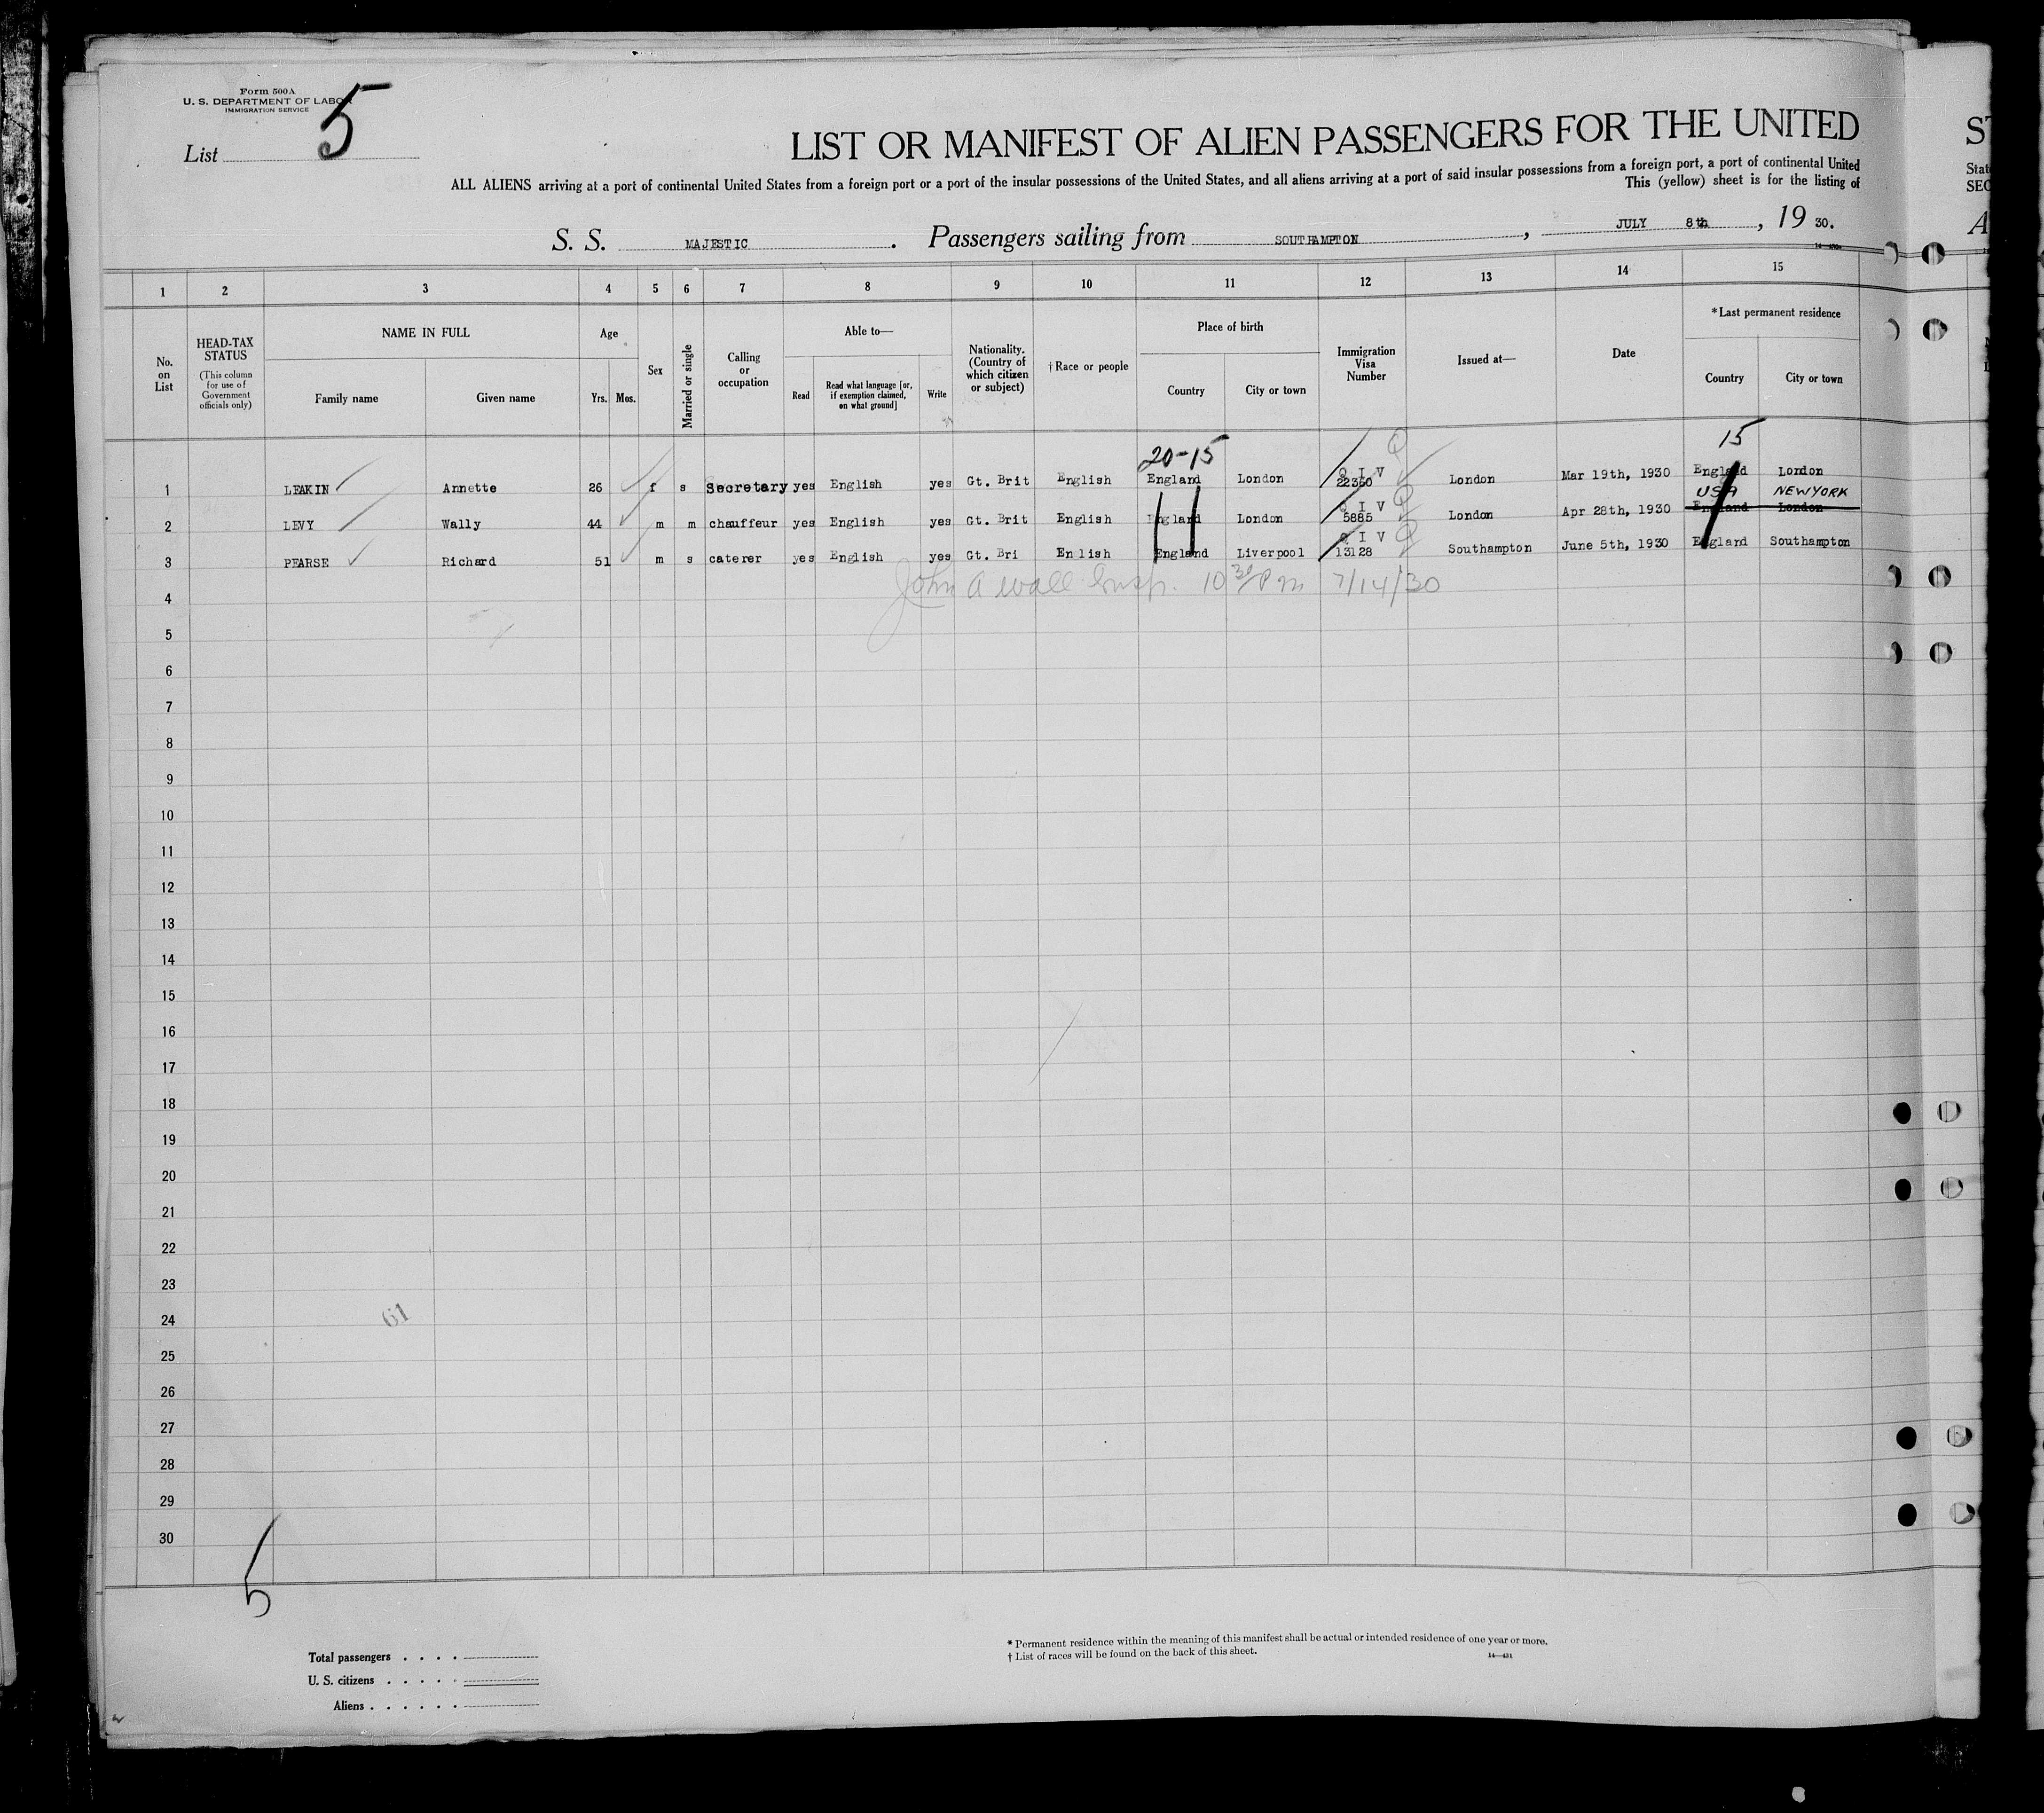 Form 500A
U. S. DEPARTMENT OF LABOR
IMMIGRATION SERVICE
List 5
LIST OR MANIFEST OF ALIEN PASSENGERS FOR THE UNITED
ST
ALL ALIENS arriving at a port of continental United States from a foreign port or a port of the insular possessions of the United States, and all aliens arriving at a port of said insular possessions from a foreign port, a port of continental United
This (yellow) sheet is for the listing of
State
SEC
S. S. MAJESTIC. Passengers sailing from SOUTHAMPTON, JULY 8th, 19 30.
A
1 2 3 4 5 6 7 8 9 10 11 12 13 14 15
No. on List
HEAD-TAX STATUS
(This column for use of Government officials only)
NAME IN FULL
Family name Given name
Age
Yrs. Mos.
Sex
Married or single
Calling or occupation
Able to—
Read
Read what language [or, if exemption claimed, on what ground]
Write
Nationality. (Country of which citizen or subject)
† Race or people
Place of birth
Country City or town
Immigration Visa Number
Issued at—
Date
* Last permanent residence
Country City or town
20-15 15
1 LEAKIN Annette 26 f s Secretary yes English yes Gt. Brit English England London Q I V 22360 London Mar 19th, 1930 England London
USA NEWYORK
2 LEVY Wally 44 m m chauffeur yes English yes Gt. Brit English England London Q I V 5885 London Apr 28th, 1930 England London
3 PEARSE Richard 51 m s caterer yes English yes Gt. Bri En lish England Liverpool Q I V 13128 Southampton June 5th, 1930 England Southampton
John A Wall Insp. 10 30 Pm 7/14/30
4
5
6
7
8
9
10
11
12
13
14
15
16
17
18
19
20
21
22
23
24
61
25
26
27
28
29
30
5
Total passengers . . . .
U. S. citizens . . . . .
Aliens . . . . . .
* Permanent residence within the meaning of this manifest shall be actual or intended residence of one year or more.
† List of races will be found on the back of this sheet.
14—431